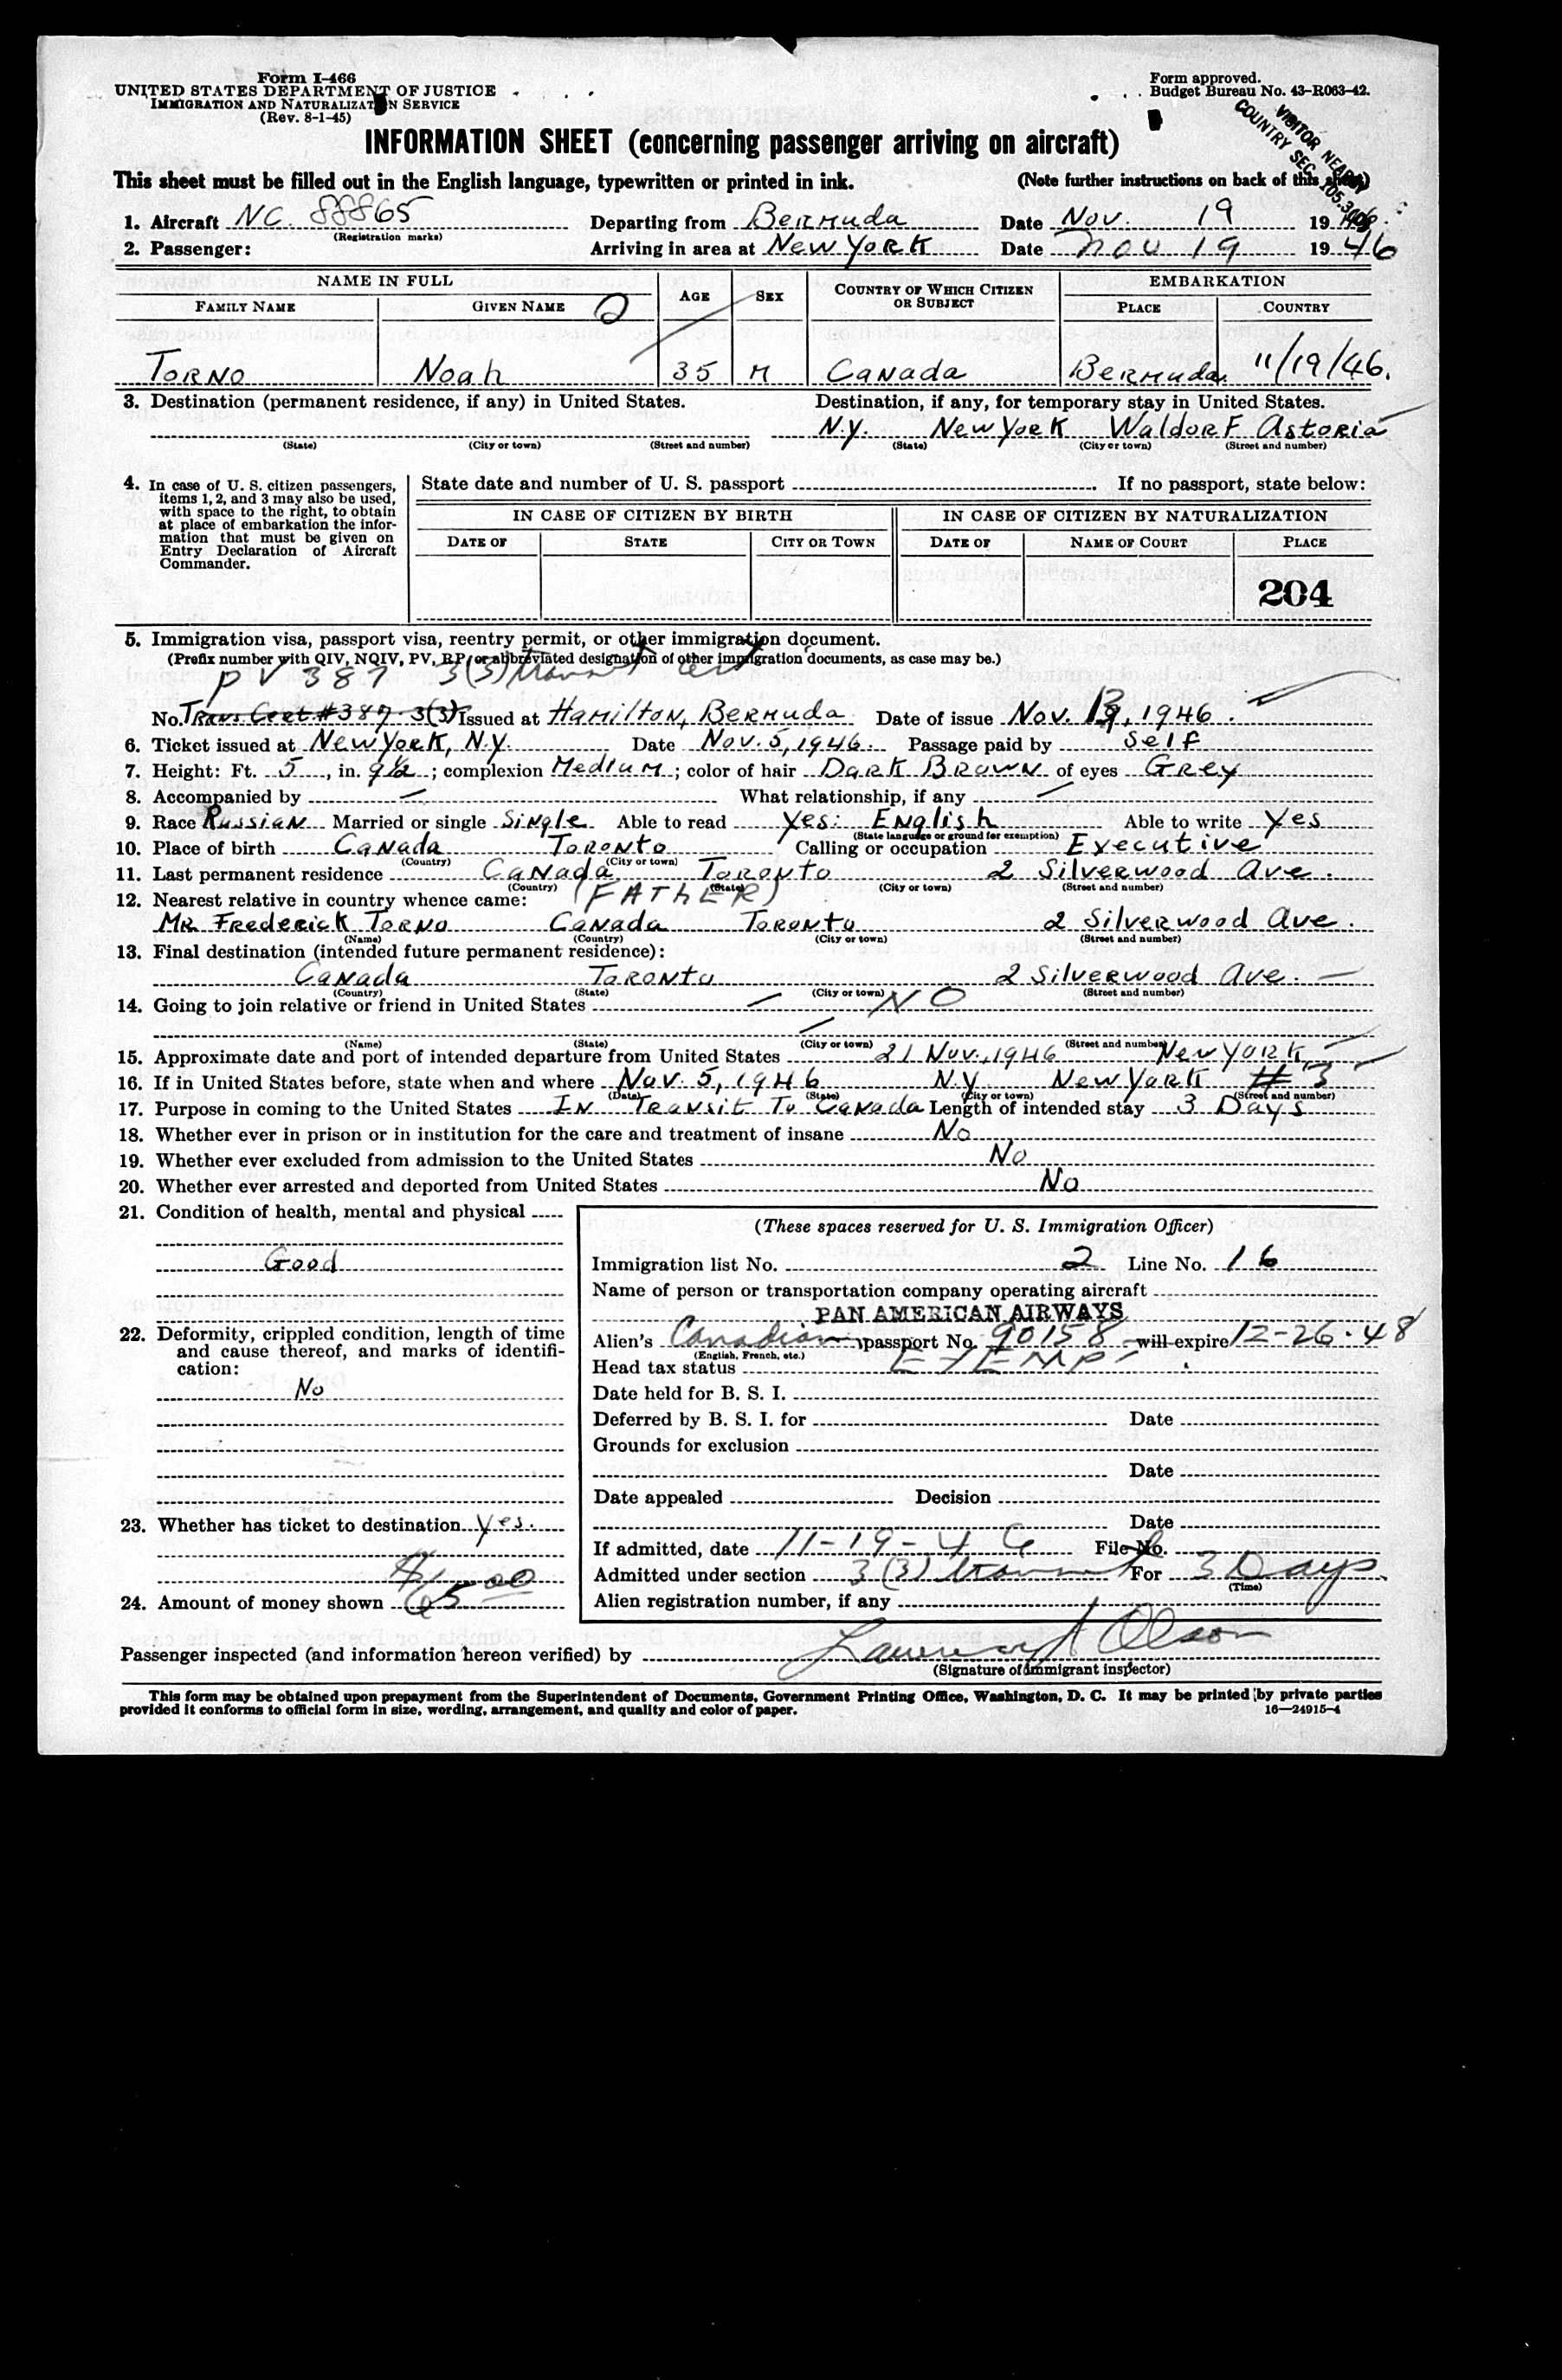 Form I-466
UNITED STATES DEPARTMENT OF JUSTICE
IMMIGRATION AND NATURALIZATION SERVICE
(Rev. 8-1-45)
Form approved.
Budget Bureau No. 43-R063-42.
VISITOR NEARBY
COUNTRY SEC. 105.3
INFORMATION SHEET (concerning passenger arriving on aircraft)
This sheet must be filled out in the English language, typewritten or printed in ink. (Note further instructions on back of this sheet)
1. Aircraft NC. 88865 Departing from Bermuda Date Nov. 19 19 46
(Registration marks)
2. Passenger: Arriving in area at New York Date Nov 19 19 46
NAME IN FULL AGE SEX COUNTRY OF WHICH CITIZEN OR SUBJECT EMBARKATION
FAMILY NAME GIVEN NAME PLACE COUNTRY
TORNO Noah 35 M Canada Bermuda 11/19/46.
3. Destination (permanent residence, if any) in United States. Destination, if any, for temporary stay in United States.
N.Y. New York Waldorf Astoria
(State) (City or town) (Street and number) (State) (City or town) (Street and number)
4. In case of U. S. citizen passengers, items 1, 2, and 3 may also be used, with space to the right, to obtain at place of embarkation the information that must be given on Entry Declaration of Aircraft Commander.
State date and number of U. S. passport If no passport, state below:
IN CASE OF CITIZEN BY BIRTH IN CASE OF CITIZEN BY NATURALIZATION
DATE OF STATE CITY OR TOWN DATE OF NAME OF COURT PLACE
204
5. Immigration visa, passport visa, reentry permit, or other immigration document.
(Prefix number with QIV, NQIV, PV, RP, or abbreviated designation of other immigration documents, as case may be.)
PV 387 3(3) transit cert
No. Trans Cert #387 3(3) Issued at Hamilton, Bermuda Date of issue Nov. 19, 1946.
6. Ticket issued at New York, N.Y. Date Nov. 5, 1946. Passage paid by Self
7. Height: Ft. 5, in. 9½; complexion Medium; color of hair Dark Brown of eyes Grey
8. Accompanied by — What relationship, if any —
9. Race Russian Married or single Single Able to read Yes: English Able to write Yes
(State language or ground for exemption)
10. Place of birth Canada Toronto Calling or occupation Executive
(Country) (City or town)
11. Last permanent residence Canada Toronto 2 Silverwood Ave.
(Country) (State) (City or town) (Street and number)
12. Nearest relative in country whence came: (FATHER)
Mr Frederick Torno Canada Toronto 2 Silverwood Ave.
(Name) (Country) (City or town) (Street and number)
13. Final destination (intended future permanent residence):
Canada Toronto 2 Silverwood Ave. —
(Country) (State) (City or town) (Street and number)
14. Going to join relative or friend in United States — NO
(Name) (State) (City or town) (Street and number)
15. Approximate date and port of intended departure from United States 21 Nov., 1946 New York,
16. If in United States before, state when and where Nov. 5, 1946 N.Y New York # 3
(Date) (State) (City or town) (Street and number)
17. Purpose in coming to the United States In Transit To Canada Length of intended stay 3 Days
18. Whether ever in prison or in institution for the care and treatment of insane No
19. Whether ever excluded from admission to the United States No
20. Whether ever arrested and deported from United States No
21. Condition of health, mental and physical
Good
22. Deformity, crippled condition, length of time and cause thereof, and marks of identification:
No
23. Whether has ticket to destination Yes.
24. Amount of money shown $65.00
(These spaces reserved for U. S. Immigration Officer)
Immigration list No. 2 Line No. 16
Name of person or transportation company operating aircraft
PAN AMERICAN AIRWAYS
Alien's Canadian passport No. 90158 will expire 12-26-48
(English, French, etc.)
Head tax status EXEMPT
Date held for B. S. I.
Deferred by B. S. I. for Date
Grounds for exclusion
Date
Date appealed Decision
Date
If admitted, date 11-19-46 File No.
Admitted under section 3(3) transit For 3 Days.
(Time)
Alien registration number, if any
Passenger inspected (and information hereon verified) by Olson
(Signature of immigrant inspector)
This form may be obtained upon prepayment from the Superintendent of Documents, Government Printing Office, Washington, D. C. It may be printed by private parties
provided it conforms to official form in size, wording, arrangement, and quality and color of paper. 16—24915-4